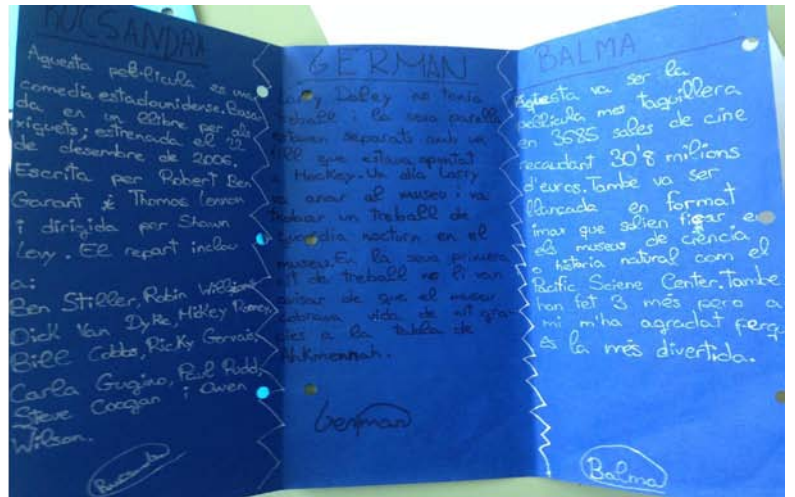 RUCSANDRA
Aquesta pel·licula es una
comedia estadounidense. Basa-
da en un llibre per als
xiquets; estrenada el 22
de desembre de 2006.
Escrita per Robert Ben
Garant i Thomas Lennon
i dirigida per Shawn
Levy. El repart inclou
a:
Ben Stiller, Robin Williams
Dick Van Dyke, Mickey Rooney,
Bill Cobbs, Ricky Gervais,
Carla Gugino, Paul Rudd,
Steve Coogan i Owen
Wilson.
Rucsandra
GERMAN
Larry Daley no tenia
treball i la seva parella
estaven separats amb un
fill que estava apuntat
a Hockey. Un día Larry
va anar al museu i va
trobar un treball de
guardia nocturn en el
museu. En la seva primera
nit de treball no li van
avisar de que el museu
cobrava vida de nit gra-
cies a la tabla de
Ahkmenrah.
German
BALMA
Aquesta va ser la
pel·lícula mes taquillera
en 3685 sales de cine
recaudant 30'8 milions
d'euros. Tambe va ser
llançada en format
imax que solien ficar en
els museus de ciència
o historia natural com el
Pacific Sciene Center. Tambe
han fet 3 més pero a
mi m'ha agradat perq
és la més divertida.
Balma